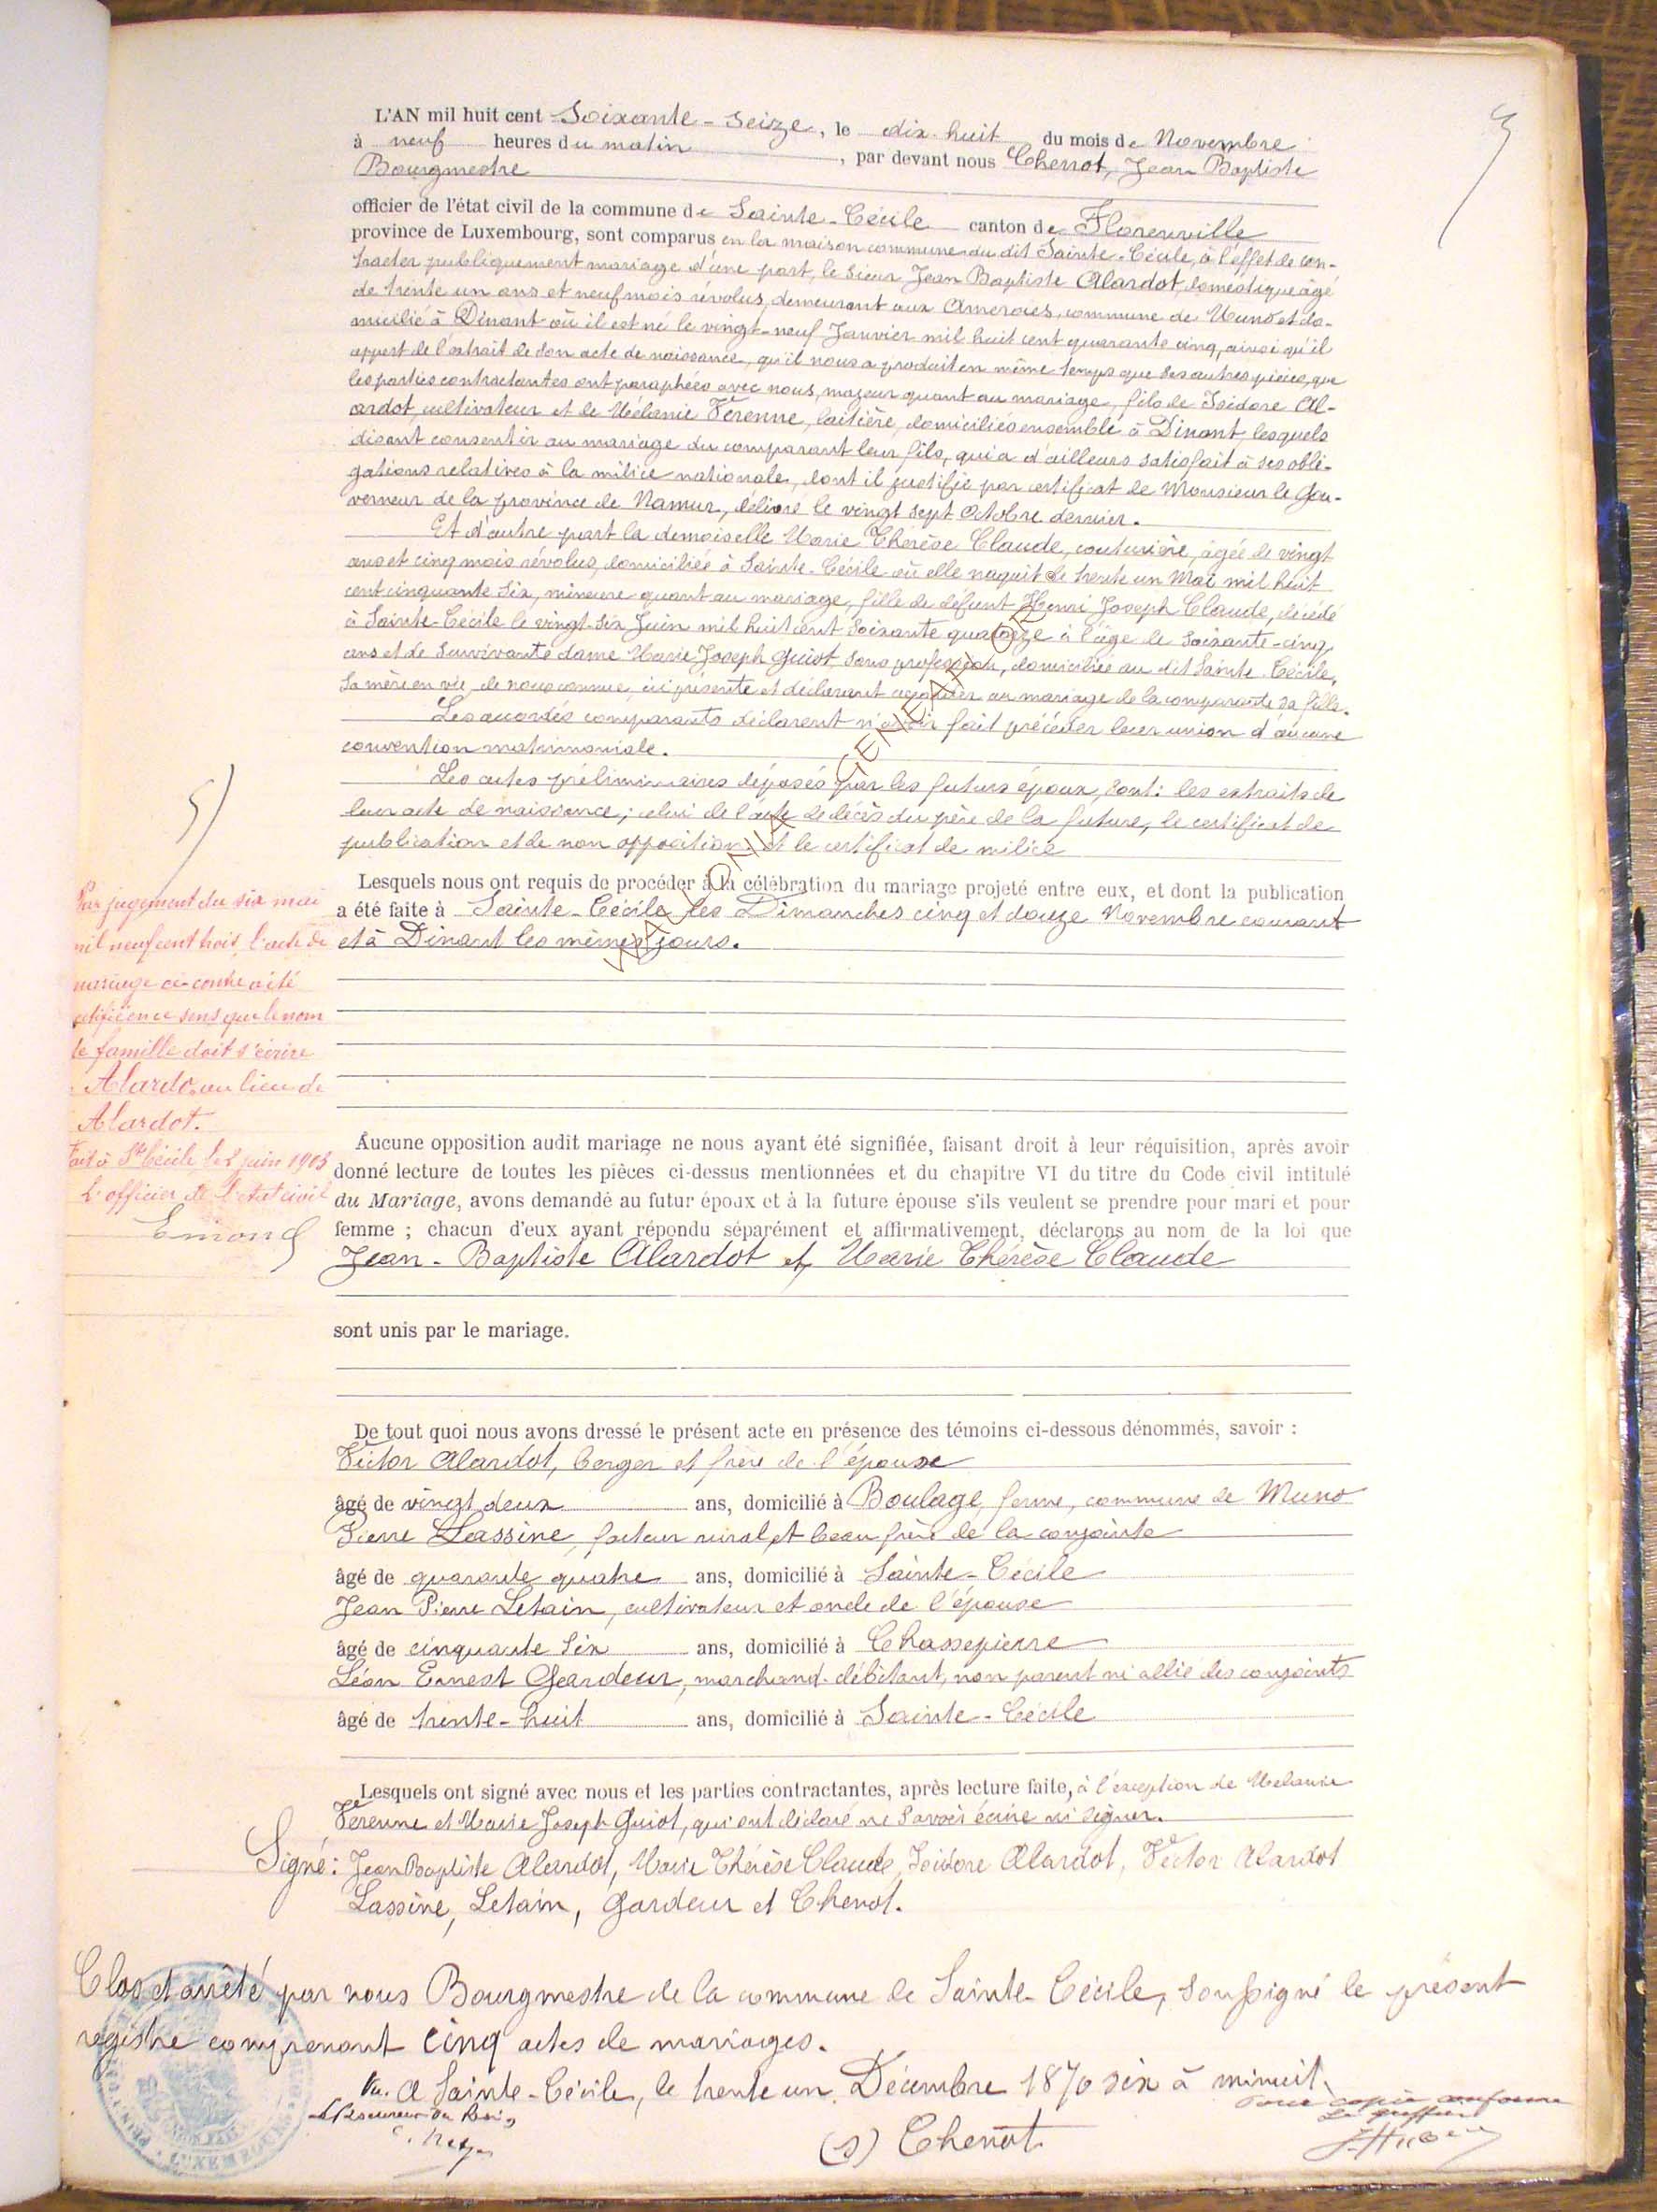 L'AN mil huit cent Soixante-Seize, le dix-huit du mois de Novembre
à neuf heures du matin, par devant nous Chenot, Jean Baptiste
Bourgmestre
officier de l'état civil de la commune de Sainte-Cécile canton de Florenville
province de Luxembourg, sont comparus en la maison commune du dit Sainte-Cécile, à l'effet de con-
tracter publiquement mariage d'une part, le Sieur Jean Baptiste Alardot, domestique âgé
de trente un ans et neuf mois révolus, demeurant aux Amerois, commune de Muno et do-
micilié à Dinant où il est né le vingt-neuf Janvier mil huit cent quarante cinq, ainsi qu'il
appert de l'extrait de son acte de naissance, qu'il nous a produit en même temps que ses autres pièces, que
les parties contractantes ont paraphées avec nous, majeur quant au mariage, fils de Isidore Al-
ardot, cultivateur et de Mélanie Férenne, laitière, domiciliés ensemble à Dinant, lesquels
disant consentir au mariage du comparant leur fils, qui a d'ailleurs satisfait à ses obli-
gations relatives à la milice nationale, dont il justifie par certificat de Monsieur le Gou-
verneur de la province de Namur, délivré le vingt sept Octobre dernier.
Et d'autre part la demoiselle Marie Thérèse Claude, couturière, âgée de vingt
ans et cinq mois révolus, domiciliée à Sainte-Cécile où elle naquit le trente un Mai mil huit
cent cinquante Six, mineure quant au mariage, fille de défunt Henri Joseph Claude, décédé
à Sainte-Cécile le vingt-Six Juin mil huit cent Soixante quatorze à l'âge de Soixante-cinq
ans et de Survivante dame Marie Joseph Guiot Sans profession, domiciliée au dit Sainte-Cécile,
Sa mère en vie, de nous connue, ici présente et déclarant acquiescer au mariage de la comparante sa fille.
Les accordés comparants déclarent n'avoir fait précéder leur union d'aucune
convention matrimoniale.
Les actes préliminaires déposés par les futurs époux, Sont: les extraits de
leur acte de naissance; celui de l'acte de décès du père de la future, le certificat de
publication et de non opposition et le certificat de milice
WALLONIA GENEANET.ORG
5/
Lesquels nous ont requis de procéder à la célébration du mariage projeté entre eux, et dont la publication
a été faite à Sainte-Cécile les Dimanches cinq et douze Novembre courant
et à Dinant les mêmes jours.
Par jugement du six mai
mil neuf cent trois, l'acte de
mariage ci-contre a été
rectifié en ce sens que le nom
de famille doit s'écrire
Alardo au lieu de
Alardot.
Fait à Ste Cécile le 2 juin 1903
L'officier de l'état civil
Emond
Aucune opposition audit mariage ne nous ayant été signifiée, faisant droit à leur réquisition, après avoir
donné lecture de toutes les pièces ci-dessus mentionnées et du chapitre VI du titre du Code civil intitulé
du Mariage, avons demandé au futur époux et à la future épouse s'ils veulent se prendre pour mari et pour
femme ; chacun d'eux ayant répondu séparément et affirmativement, déclarons au nom de la loi que
Jean-Baptiste Alardot et Marie Thérèse Claude
sont unis par le mariage.
De tout quoi nous avons dressé le présent acte en présence des témoins ci-dessous dénommés, savoir :
Victor Alardot, berger et frère de l'épouse
âgé de vingt deux ans, domicilié à Boulage, ferme, commune de Muno
Pierre Lassine, facteur rural et beau frère de la conjointe
âgé de quarante quatre ans, domicilié à Sainte-Cécile
Jean Pierre Letain, cultivateur et oncle de l'épouse
âgé de cinquante Six ans, domicilié à Chassepierre
Léon Ernest Geardeur, marchand-débitant, non parent ni allié des conjoints
âgé de trente-huit ans, domicilié à Sainte-Cécile
Lesquels ont signé avec nous et les parties contractantes, après lecture faite, à l'exception de Mélanie
Férenne et Marie Joseph Guiot, qui ont déclaré ne Savoir écrire ni Signer.
Signé: Jean Baptiste Alardot, Marie Thérèse Claude, Isidore Alardot, Victor Alardot
Lassine, Letain, Gardeur et Chenot.
Clos et arrêté par nous Bourgmestre de la commune de Sainte-Cécile, soussigné le présent
registre comprenant Cinq actes de mariages.
Vu. A Sainte-Cécile, le trente un Décembre 1870 six à minuit.
Le Procureur du Roi,
Pour copie conforme
Le greffier
(s) Chenot